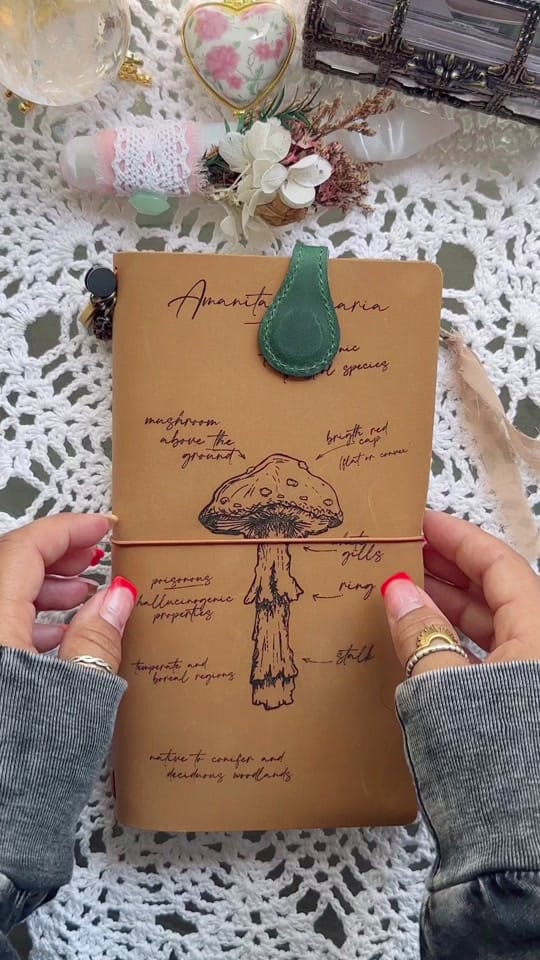 Amanita
species
mushroom
above the
ground
brigth red
cap
(flat or convex
gills
ring
poisonous
hallucinogenic
properties
stalk
temperate and
boreal regions
native to conifer and
deciduous woodlands